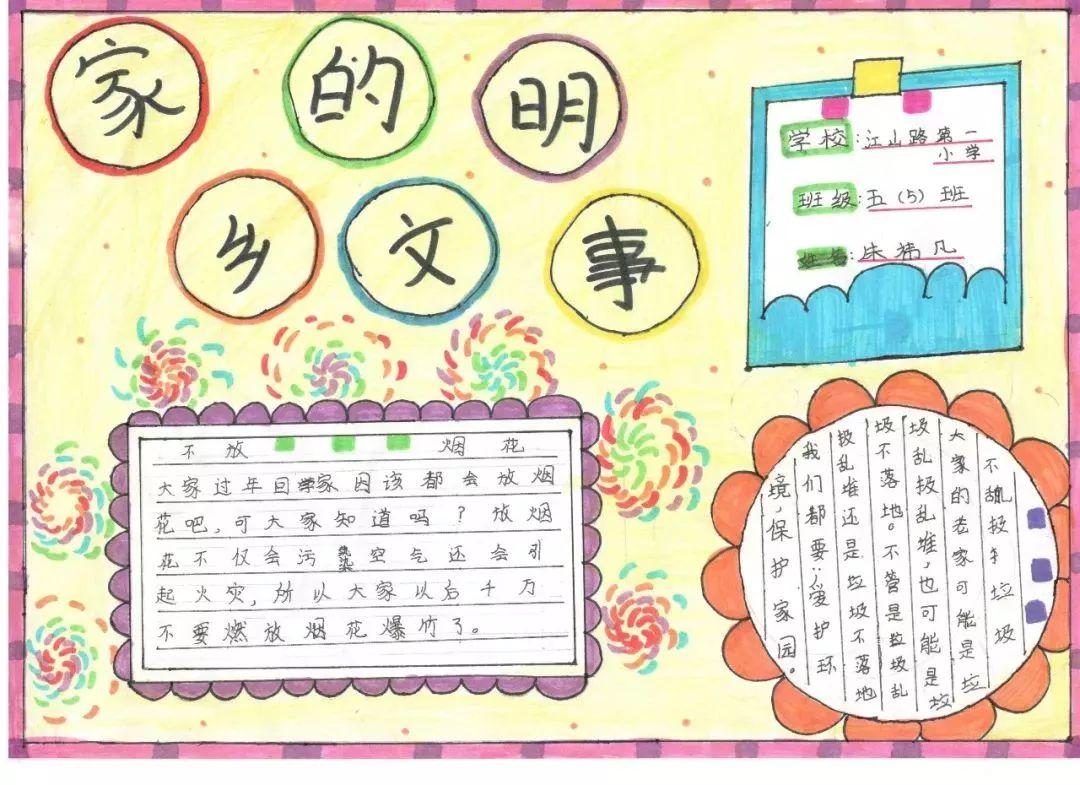 家的明
乡文事
学校:江山路第一
小学
班级:五(5)班
姓名:朱祎凡
不放 烟花
大家过年回家因该都会放烟
花吧,可大家知道吗?放烟
花不仅会污染空气还会引
起火灾,所以大家以后千万
不要燃放烟花爆竹了。
不乱扔 垃圾
大家的老家可能是垃
圾乱扔乱堆,也可能是垃
圾不落地。不管是垃圾乱
扔乱堆还是垃圾不落地
我们都要:爱护环
境,保护家园。